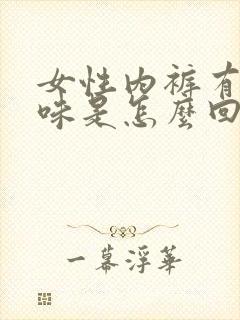 女性内裤有
味是怎麼回
一幕浮華